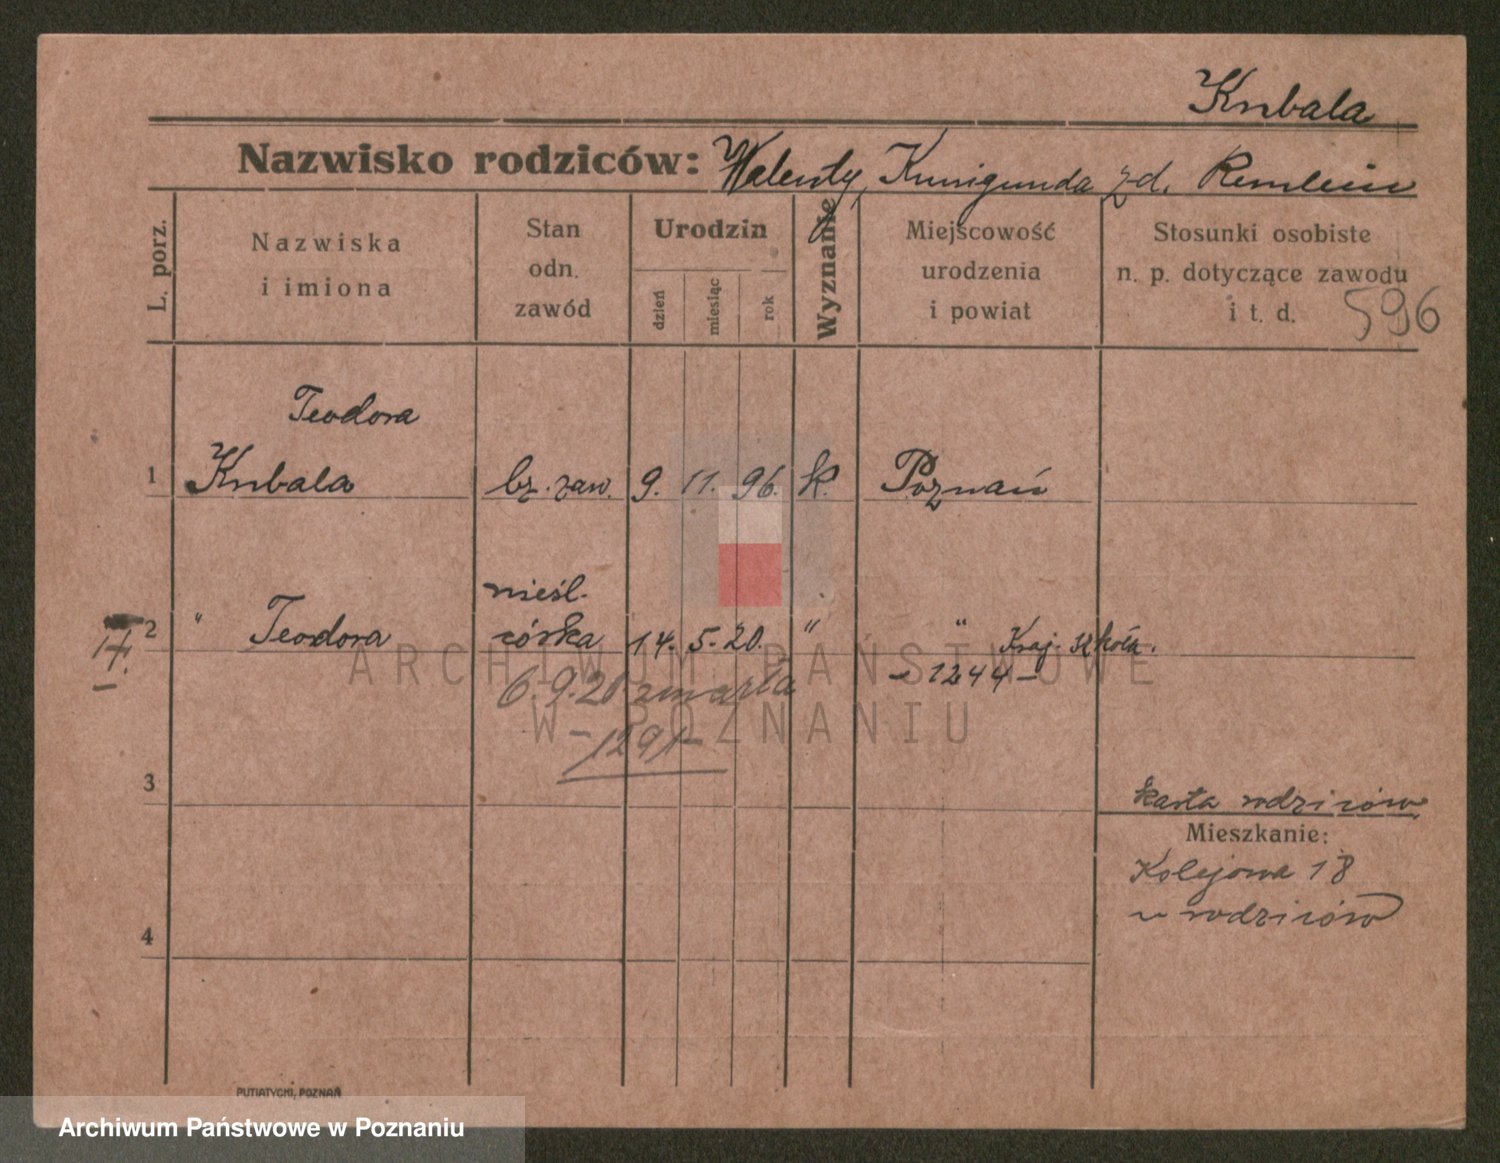 Kubala
Nazwisko rodziców: Walenty, Kunigunda zd. Remlein
L. porz.
Nazwiska
i imiona
Stan
odn.
zawód
Urodzin
dzień
miesiąc
rok
Wyznanie
Miejscowość
urodzenia
i powiat
Stosunki osobiste
n. p. dotyczące zawodu
i t. d.
596
Teodora
1 Kubala bz. zaw. 9. 11. 96. k. Poznań
nieśl.
2 " Teodora córka 14. 5. 20. " " Kraj. szkoła.
†.
6.9.20 zmarła
- 1244 -
- 1291 -
3
karta rodziców
Mieszkanie:
Kolejowa 18
u rodziców
4
PUTIATYCKI, POZNAŃ
ARCHIWUM PAŃSTWOWE
W POZNANIU
Archiwum Państwowe w Poznaniu